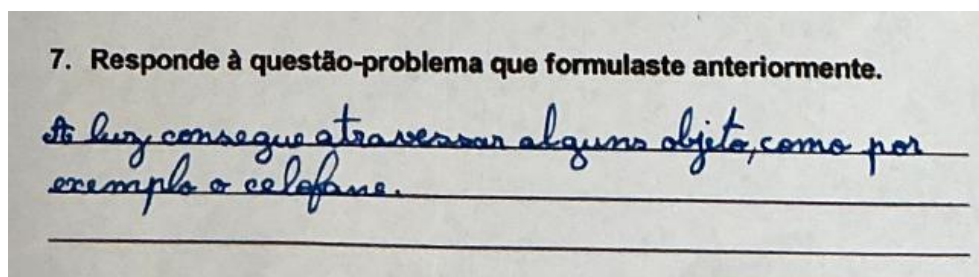 7. Responde à questão-problema que formulaste anteriormente.
A luz, consegue atravessar alguns objeto, como por
exemplo o celofane.